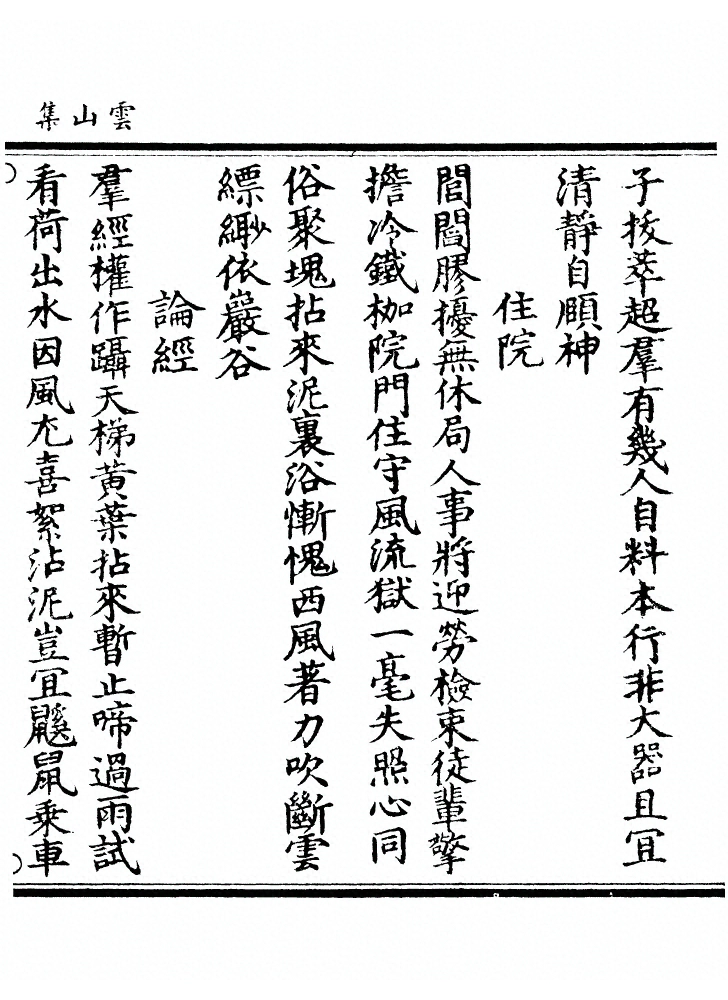 雲山集
子拔萃超羣有幾人自料本行非大器且冝
清靜自頤神
住院
閭閻膠擾無休局人事將迎勞檢束徒輩擎
擔冷鐵枷院門住守風流獄一毫失照心同
俗聚塊拈來泥裏浴慚愧西風著力吹斷雲
縹緲依巖谷
論經
羣經權作躡天梯黃葉拈來暫止啼過雨試
看荷出水因風冘喜絮沾泥豈冝鼷鼠乗車